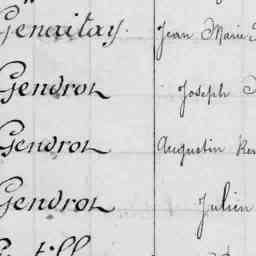 Genaitay. Jean Marie
Gendron Joseph
Gendron Augustin
Gendron Julien